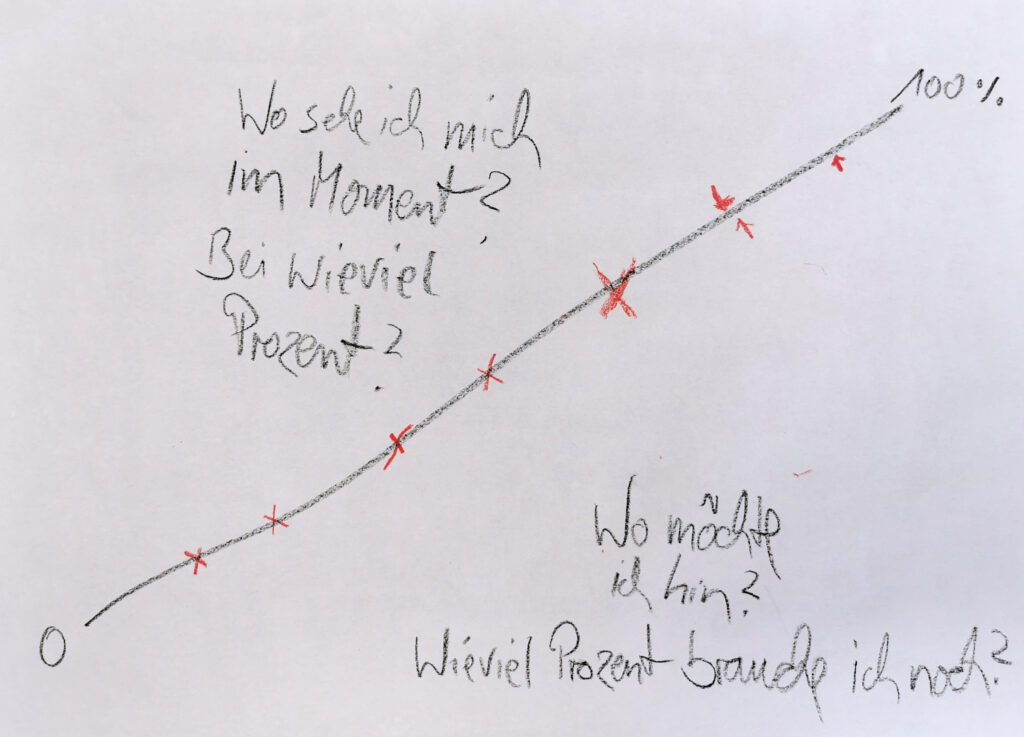 100%
Wo sehe ich mich
im Moment?
Bei wieviel
Prozent?
Wo möchte
ich hin?
Wieviel Prozent brauche ich noch?
0